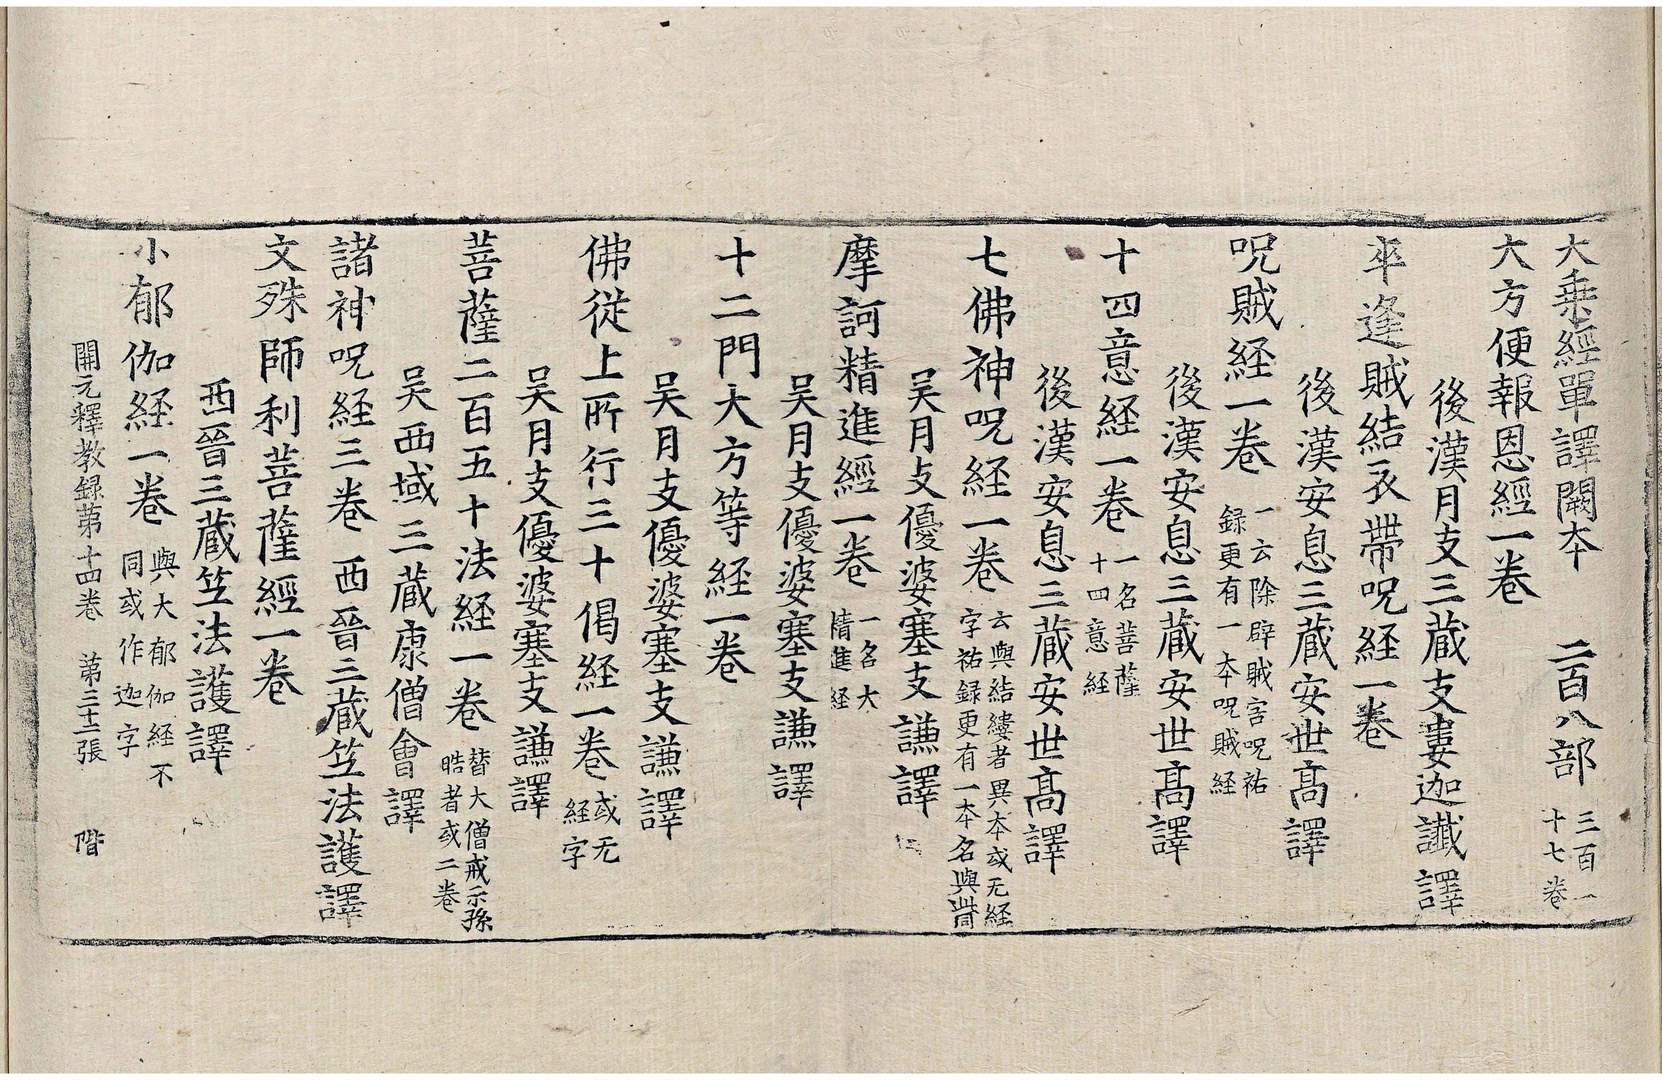 大乗經單譯闕夲　二百八部　三百一
十七卷
大方便報恩經一卷
後漢月支三藏支婁迦讖譯
卒逢賊結衣帶呪経一卷
後漢安息三藏安世髙譯
呪賊経一卷　一云除辟賊害呪祐
録更有一夲呪賊経
後漢安息三藏安世髙譯
十四意経一卷　一名菩薩
十四意経
後漢安息三藏安世髙譯
七佛神呪経一卷　云與結縷者異夲或无経
字祐録更有一夲名與此同
吴月支優婆塞支謙譯
摩訶精進經一卷　一名大
精進経
吴月支優婆塞支謙譯
十二門大方等経一卷
吴月支優婆塞支謙譯
佛從上所行三十偈経一卷　或无
経字
吴月支優婆塞支謙譯
菩薩二百五十法経一卷　替大僧戒示孫
晧者或二卷
吴西域三藏康僧會譯
諸神呪経三卷　西晉三藏竺法護譯
文殊師利菩薩經一卷
西晉三藏竺法護譯
小郁伽経一卷　與大郁伽経不
同或作迦字
開元釋教録第十四卷　第三十二張　階